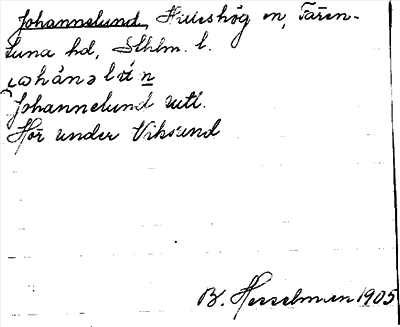 Johannelund, Hilleshög sn, Fären-
tuna hd, Sthlm. l.
Johannelund uttl.
Hör under Viksund
B. Hesselman 1905